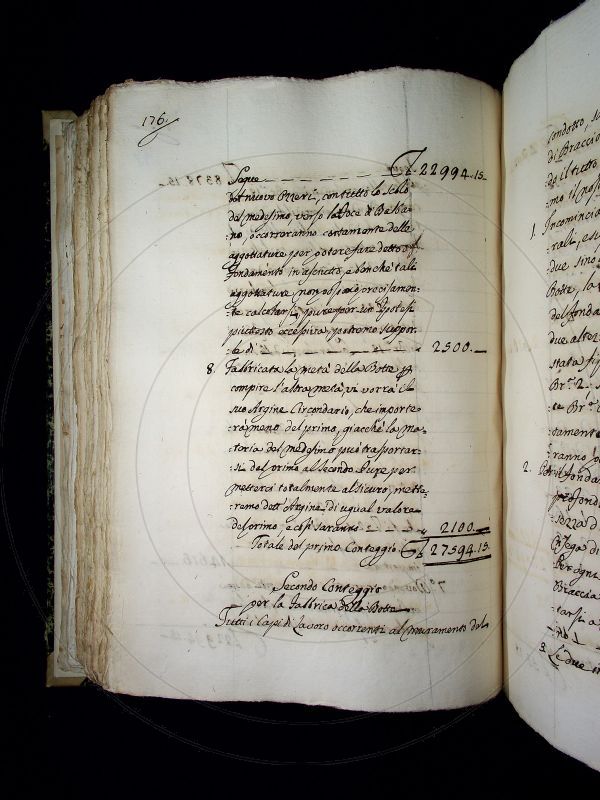 176.
Segue — — — — — — 22994.15.
del nuovo Ozzeri, con tutto lo Scolo
del medesimo, verso la Foce di Bessa=
:no, occorreranno certamente delle
aggottature per potere fare detto
fondamento in asciutto, e benchè tali
aggottature non possa precisamen=
:te calcolarsi, pure per un Ipotesi
piuttosto eccessiva, potremo suppor=
:le di — — — — — 2500.—
8. Fabbricata la metà della Botte p
compire l'altra metà vi vorrà il
suo Argine Circondario, che importe=
:rà meno del primo, giacchè la ma=
:teria del medesimo può trasportar=
:si dal primo al secondo. Pure per
metterci totalmente al sicuro, mette=
:remo dett'Argine di ugual valore
del primo, e così saranno — — 2100.—
Totale del primo Conteggio 27594.15.
Secondo Conteggio
per la Fabbrica della Botte
Tutti i Capi di Lavoro occorrenti al Muramento del
condotto, 
di Braccio
do il tutto
mo il
1. Incomincio
due sino
Botte, la
del fonda
due alter
stata
Br.ª 2.
ranno
2.
profond
Braccia
3. Le due